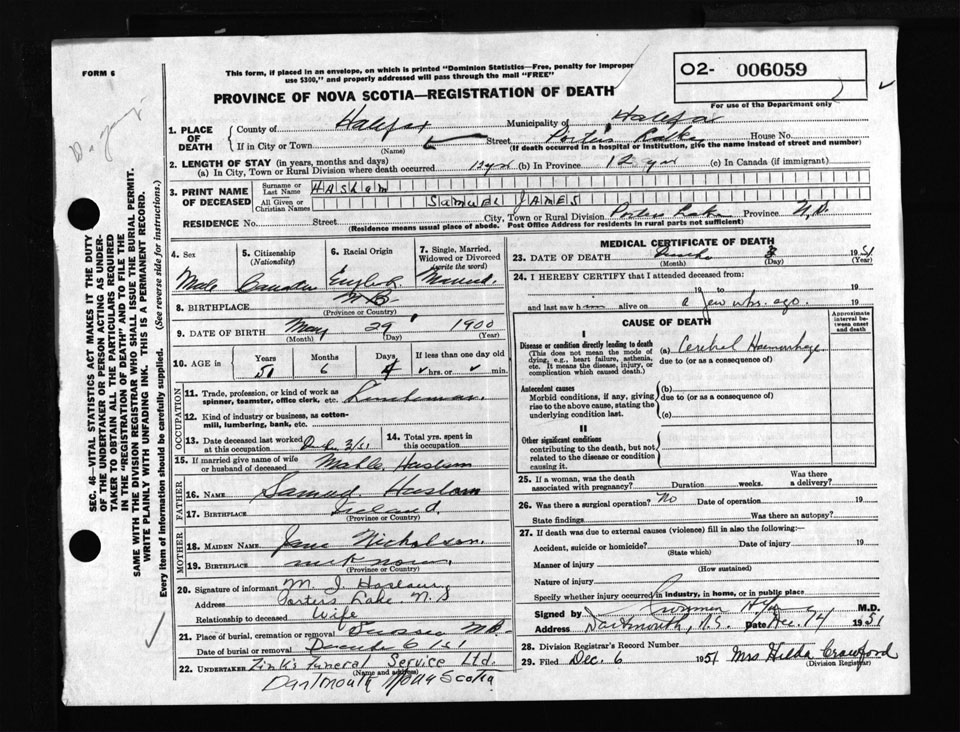 FORM 6
This form, if placed in an envelope, on which is printed "Dominion Statistics—Free, penalty for improper
use $300," and properly addressed will pass through the mail "FREE"
O2- 006059
For use of the Department only
PROVINCE OF NOVA SCOTIA—REGISTRATION OF DEATH
1. PLACE OF DEATH
County of Halifax Municipality of Halifax
If in City or Town (Name) Street Porters Lake House No.
(If death occurred in a hospital or institution, give the name instead of street and number)
2. LENGTH OF STAY (in years, months and days)
(a) In City, Town or Rural Division where death occurred 12 yrs (b) In Province 12 yrs (c) In Canada (if immigrant)
3. PRINT NAME OF DECEASED
Surname or Last Name Haslam
All Given or Christian Names SAMUEL JAMES
RESIDENCE No. Street City, Town or Rural Division Porters Lake Province N.S.
(Residence means usual place of abode. Post Office Address for residents in rural parts not sufficient)
4. Sex Male
5. Citizenship (Nationality) Canadian
6. Racial Origin English
7. Single, Married, Widowed or Divorced (write the word) Married
8. BIRTHPLACE N B (Province or Country)
9. DATE OF BIRTH May 29, 1900
(Month) (Day) (Year)
10. AGE in Years Months Days If less than one day old
51 6 4 hrs. or min.
OCCUPATION
11. Trade, profession, or kind of work as spinner, teamster, office clerk, etc.
12. Kind of industry or business, as cotton-mill, lumbering, bank, etc.
13. Date deceased last worked at this occupation 3/51
14. Total yrs. spent in this occupation
15. If married give name of wife or husband of deceased Haslam
FATHER
16. Name Samuel Haslam
17. Birthplace Ireland
(Province or Country)
MOTHER
18. Maiden Name Jane Nicholson
19. Birthplace unknown
(Province or Country)
20. Signature of informant M. J. Haslam
Address Porters Lake N.S
Relationship to deceased Wife
21. Place of burial, cremation or removal Sussex N.B.
Date of burial or removal December 6 1951
22. UNDERTAKER Zink's Funeral Service Ltd.
(Name and address)
Dartmouth Nova Scotia
MEDICAL CERTIFICATE OF DEATH
23. DATE OF DEATH 3 1951
(Month) (Day) (Year)
24. I HEREBY CERTIFY that I attended deceased from:
19 to 19
and last saw him alive on a few whs. ago. 19
CAUSE OF DEATH
Approximate interval between onset and death
I
Disease or condition directly leading to death
(This does not mean the mode of dying, e.g., heart failure, asthenia, etc. It means the disease, injury, or complication which caused death.)
(a) Cerebral Haemorrhage
due to (or as a consequence of)
Antecedent causes
Morbid conditions, if any, giving rise to the above cause, stating the underlying condition last.
(b)
due to (or as a consequence of)
(c)
II
Other significant conditions
contributing to the death, but not related to the disease or condition causing it.
25. If a woman, was the death associated with pregnancy? Duration weeks. Was there a delivery?
26. Was there a surgical operation? No Date of operation 19
State findings Was there an autopsy?
27. If death was due to external causes (violence) fill in also the following:—
Accident, suicide or homicide? Date of injury 19
(State which)
Manner of injury
(How sustained)
Nature of injury
Specify whether injury occurred in industry, in home, or in public place
Signed by M.D.
Address Dartmouth, N.S. Date Dec. 14 1951
28. Division Registrar's Record Number
29. Filed Dec. 6 1951 Mrs Hilda Crawford
(Division Registrar)
SEC. 46—VITAL STATISTICS ACT MAKES IT THE DUTY
OF THE UNDERTAKER OR PERSON ACTING AS UNDER-
TAKER TO OBTAIN ALL THE PARTICULARS REQUIRED
IN THE "REGISTRATION OF DEATH" AND TO FILE THE
SAME WITH THE DIVISION REGISTRAR WHO SHALL ISSUE THE BURIAL PERMIT.
WRITE PLAINLY WITH UNFADING INK. THIS IS A PERMANENT RECORD.
Every item of information should be carefully supplied. (See reverse side for instructions.)